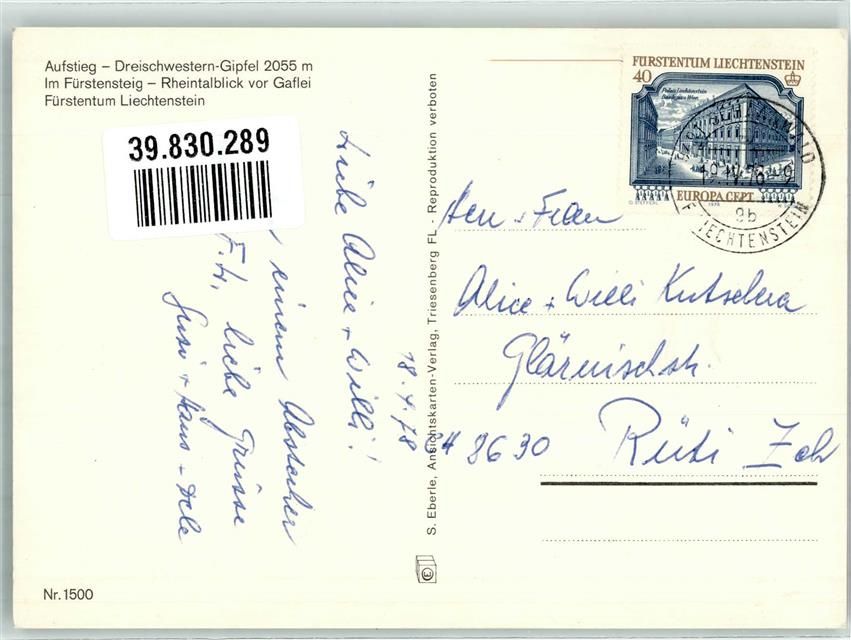 Aufstieg – Dreischwestern-Gipfel 2055 m
Im Fürstensteig – Rheintalblick vor Gaflei
Fürstentum Liechtenstein
39.830.289
Liebe Alice + Willi!
einem Abstecher
F.H, liebe Grüsse
Susi + Hans - Dele
18.4.78
S. Eberle, Ansichtskarten-Verlag, Triesenberg FL - Reproduktion verboten
FÜRSTENTUM LIECHTENSTEIN
40
Palais Liechtenstein
EUROPA CEPT
1978
9b
LIECHTENSTEIN
Herr + Frau
Alice + Willi Kutschera
Glärnischstr.
CH 8630 Rüti Zch
Nr. 1500